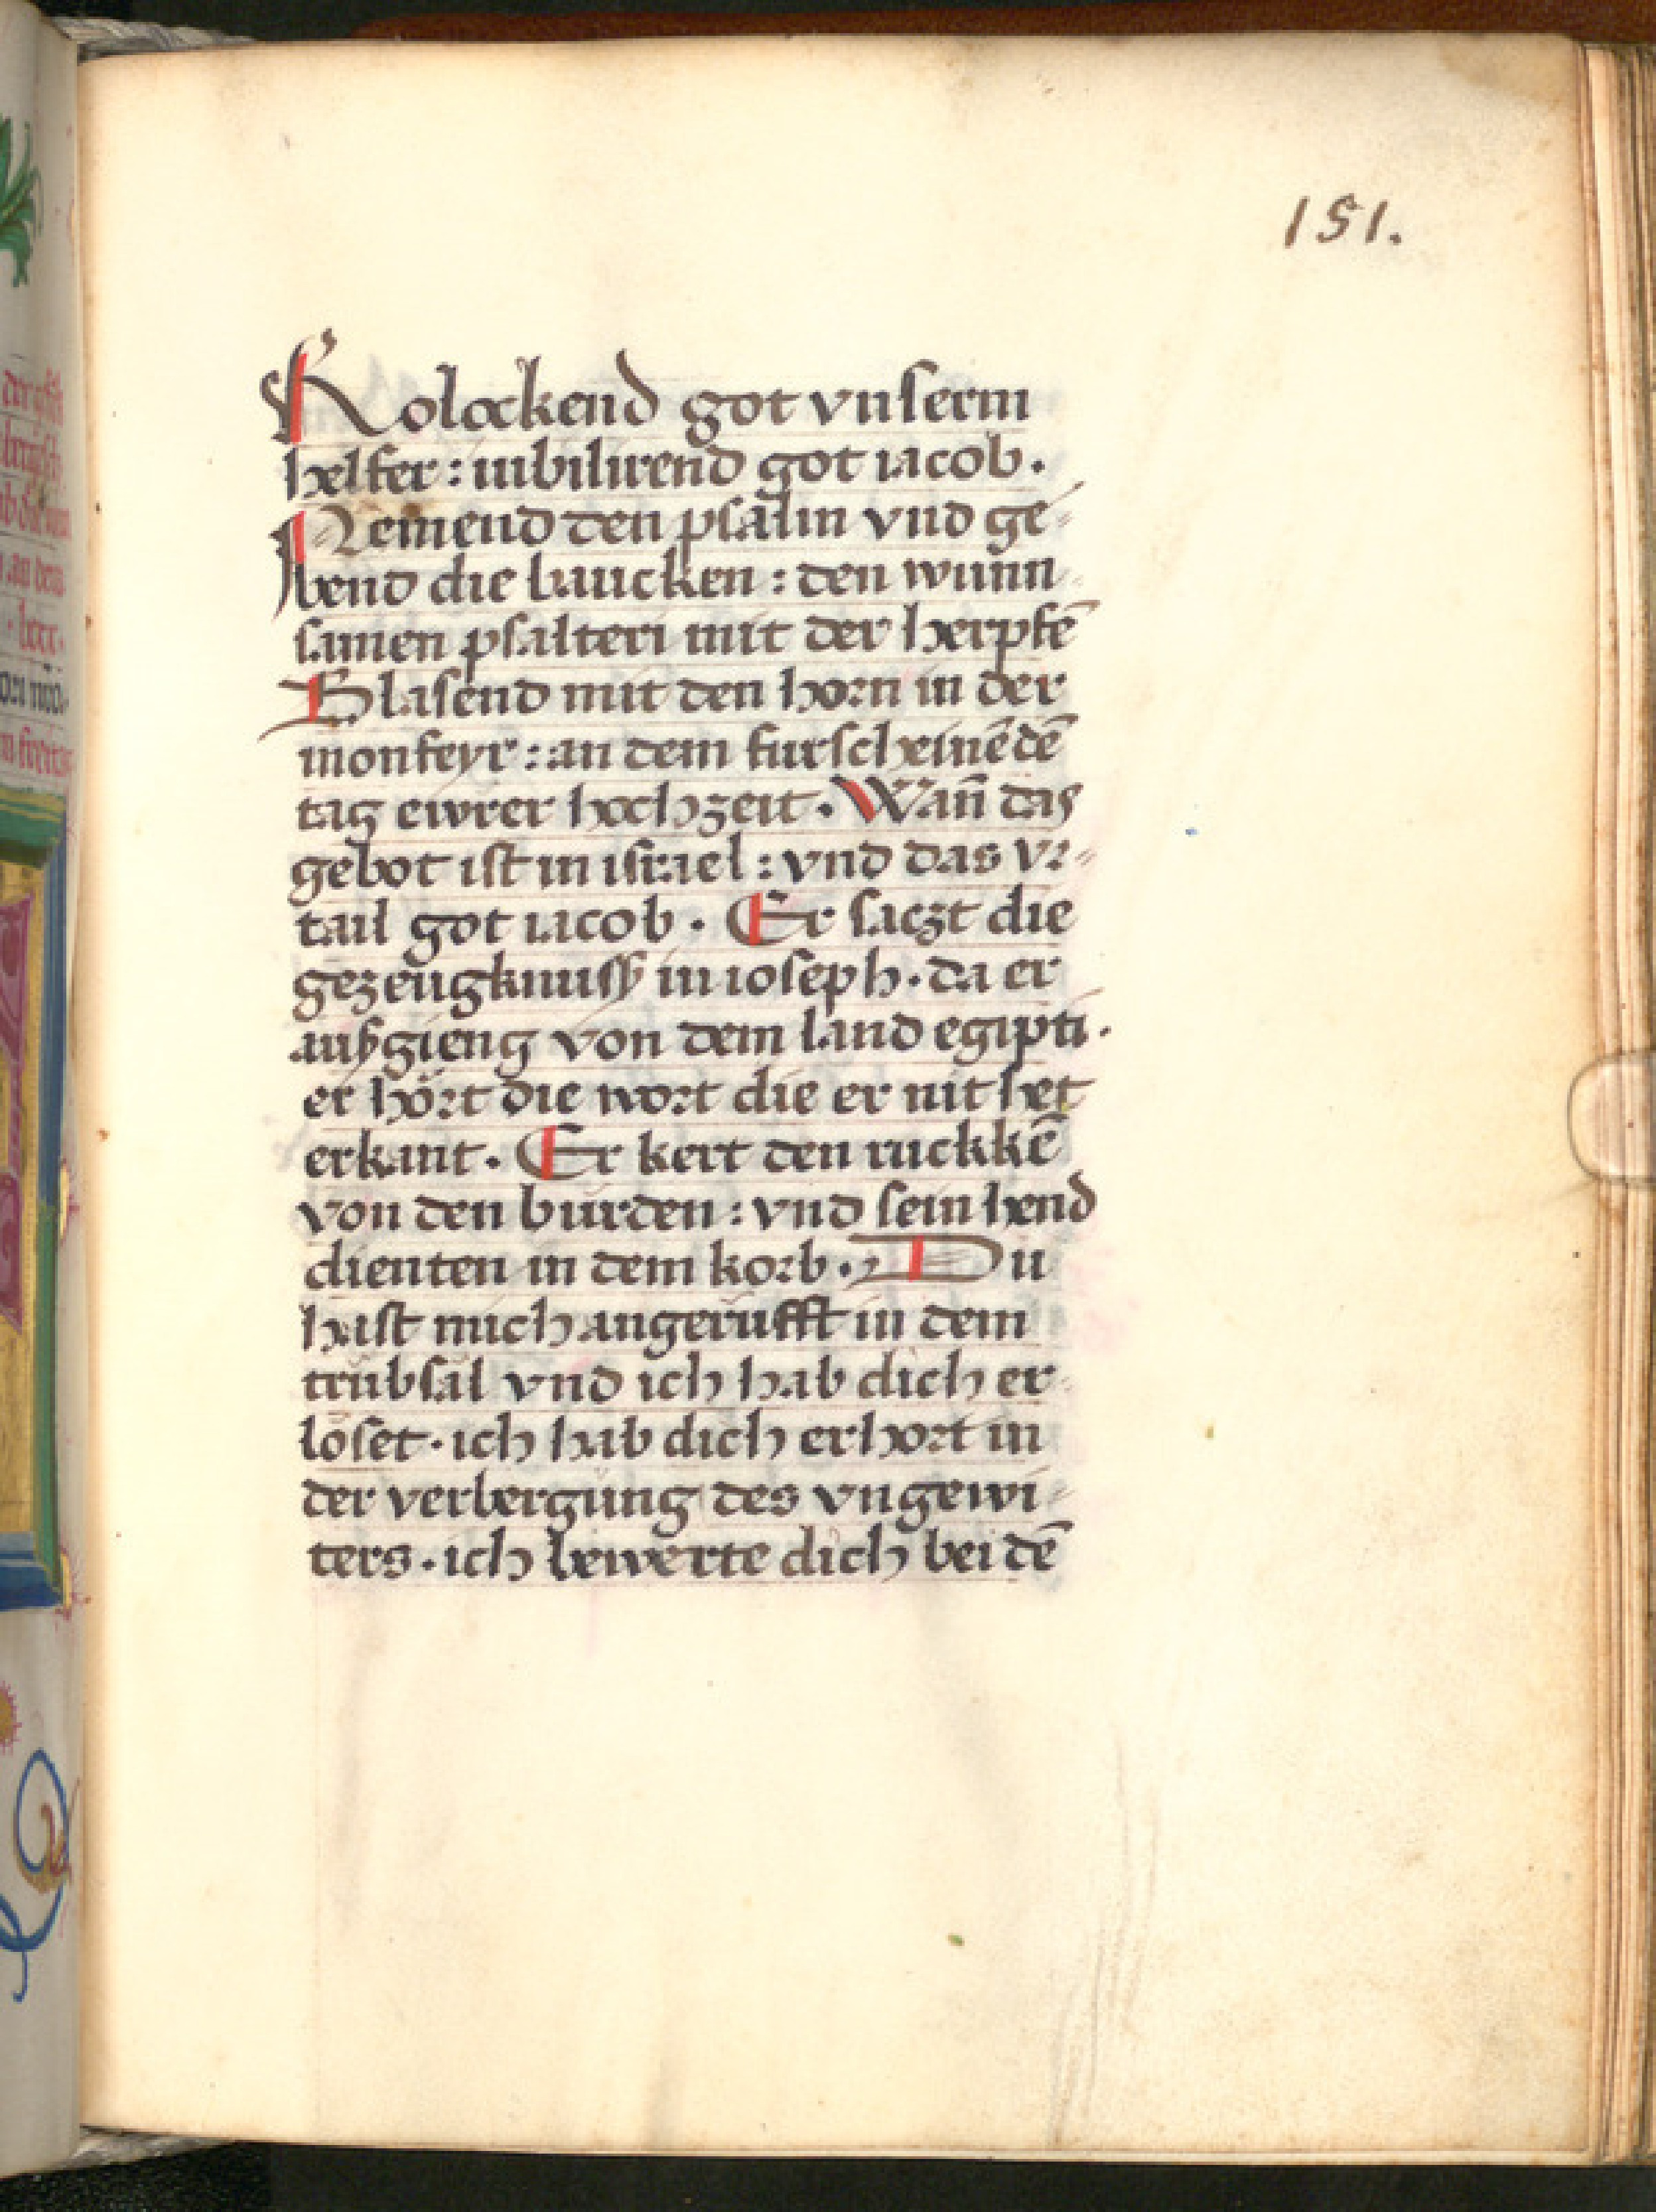 151.
Frolockend got vnserm
helfer : iubilirend got iacob .
Nemend den psalm vnd ge=
bend die baucken : den wunn=
samen psalteri mit der herpfē
Blasend mit den horn in der
monfeyr : an dem furscheinēdē
tag ewrer hochzeit . Wañ das
gebot ist in israel : vnd das vr=
tail got iacob . Er saczt die
gezeugknuß in ioseph . da er
außgieng von dem land egipti .
er hört die wort die er nit het
erkant . Er kert den ruckkē
von den bŭrden : vnd sein hend
dienten in dem korb . Du
hast mich angerŭfft in dem
trŭbsal vnd ich hab dich er=
löset . ich hab dich erhort in
der verbergŭng des vngewi=
ters . ich bewerte dich bei dē